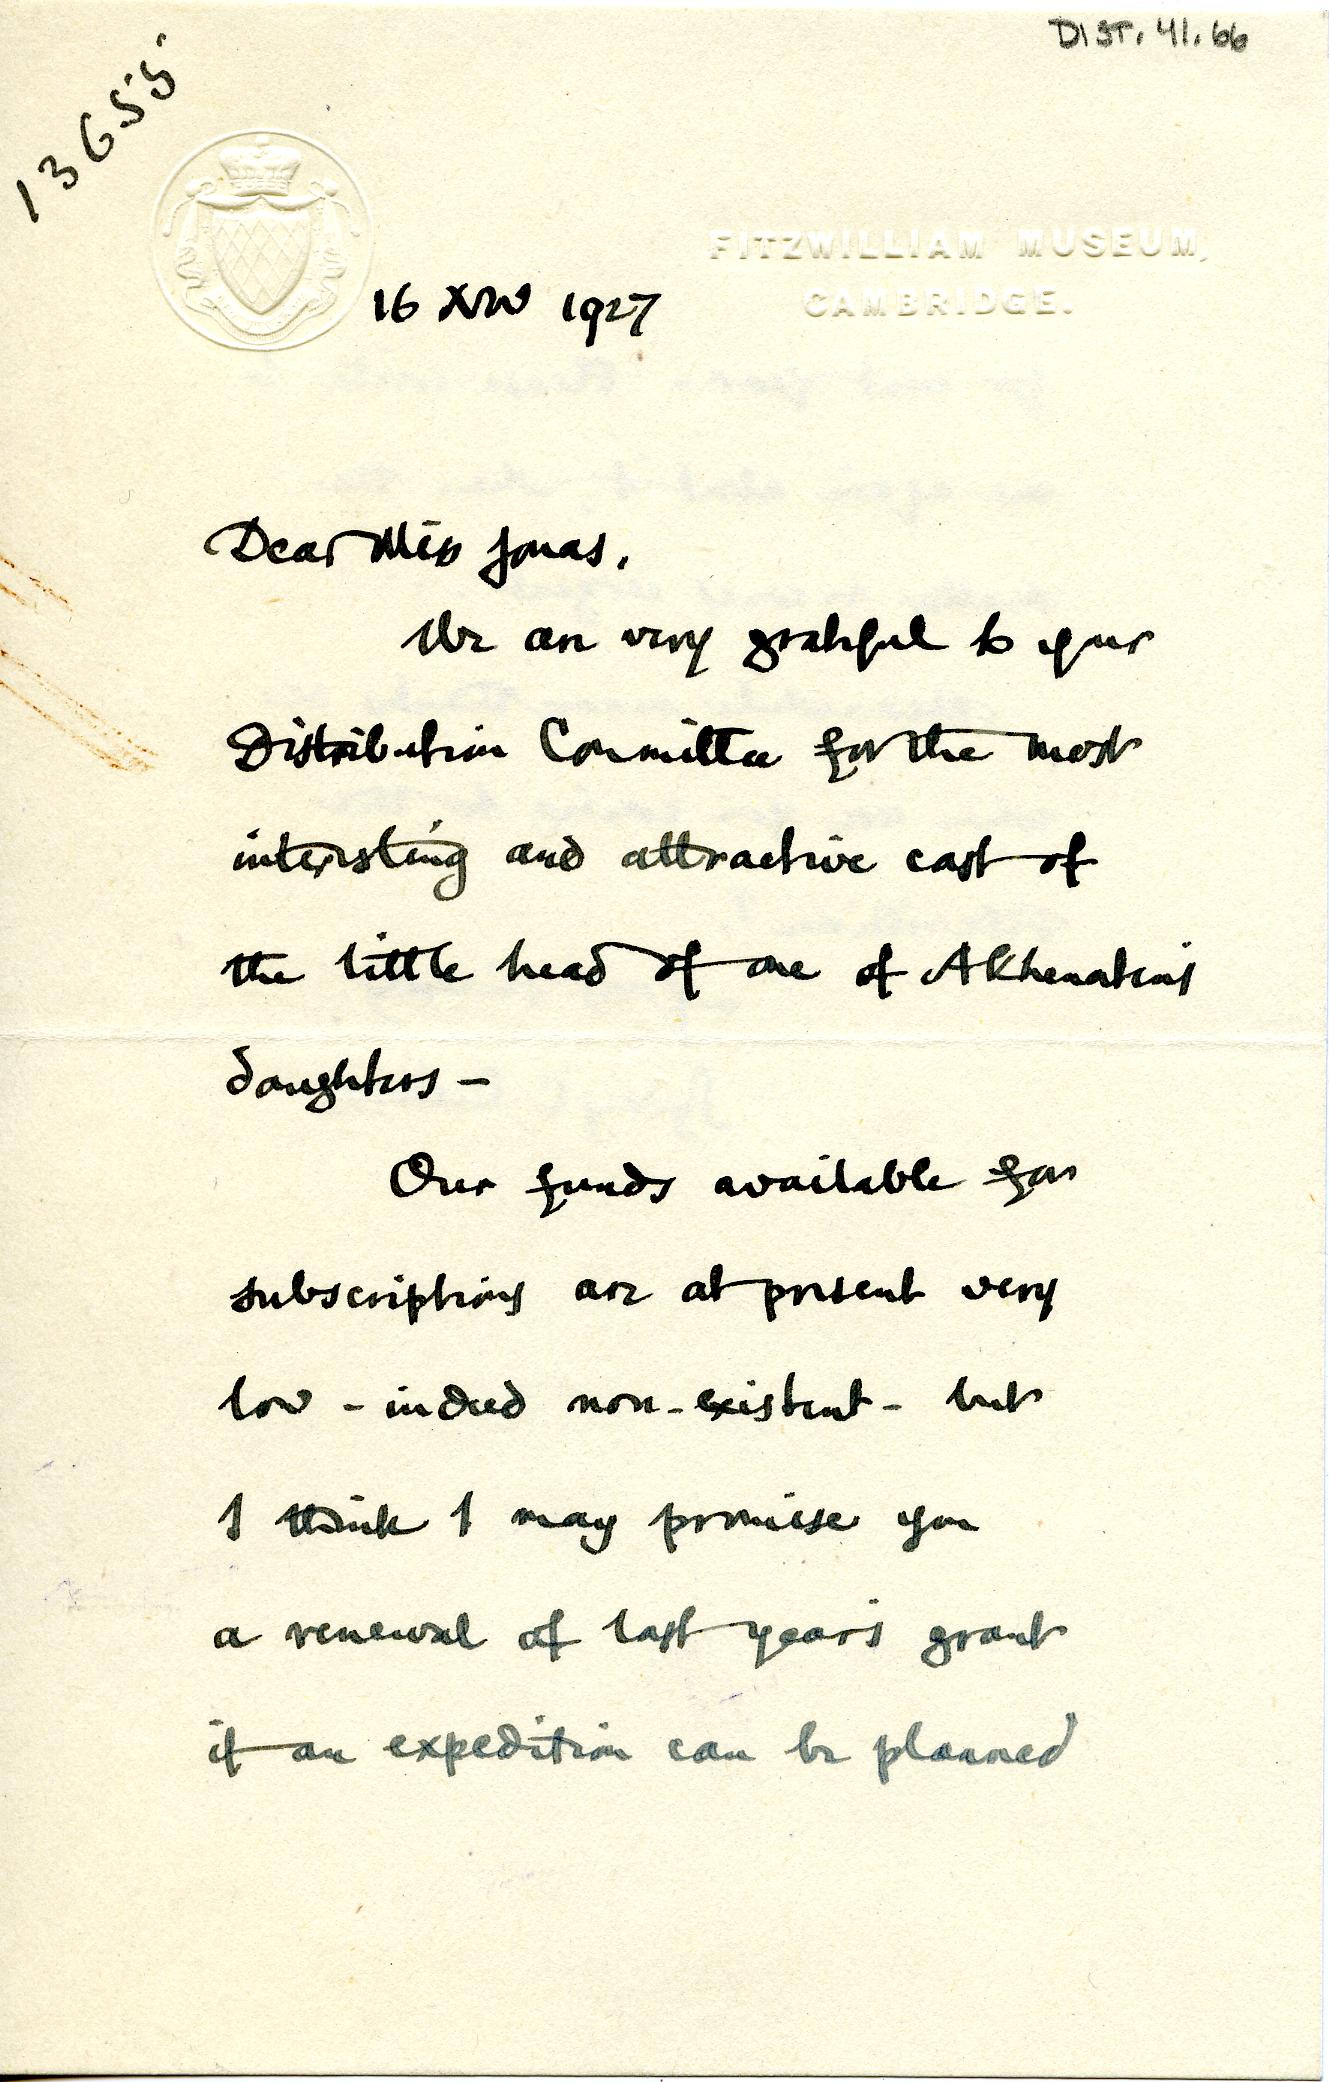 DIST. 41. 66
13655
FITZWILLIAM MUSEUM,
CAMBRIDGE.
16 Nov 1927
Dear Miss Jonas,
We are very grateful to your
Distribution Committee for the most
interesting and attractive cast of
the little head of one of Akhenaten's
daughters –
Our funds available for
subscriptions are at present very
low - indeed non-existent - but
I think I may promise you
a renewal of last year's grant
if an expedition can be planned